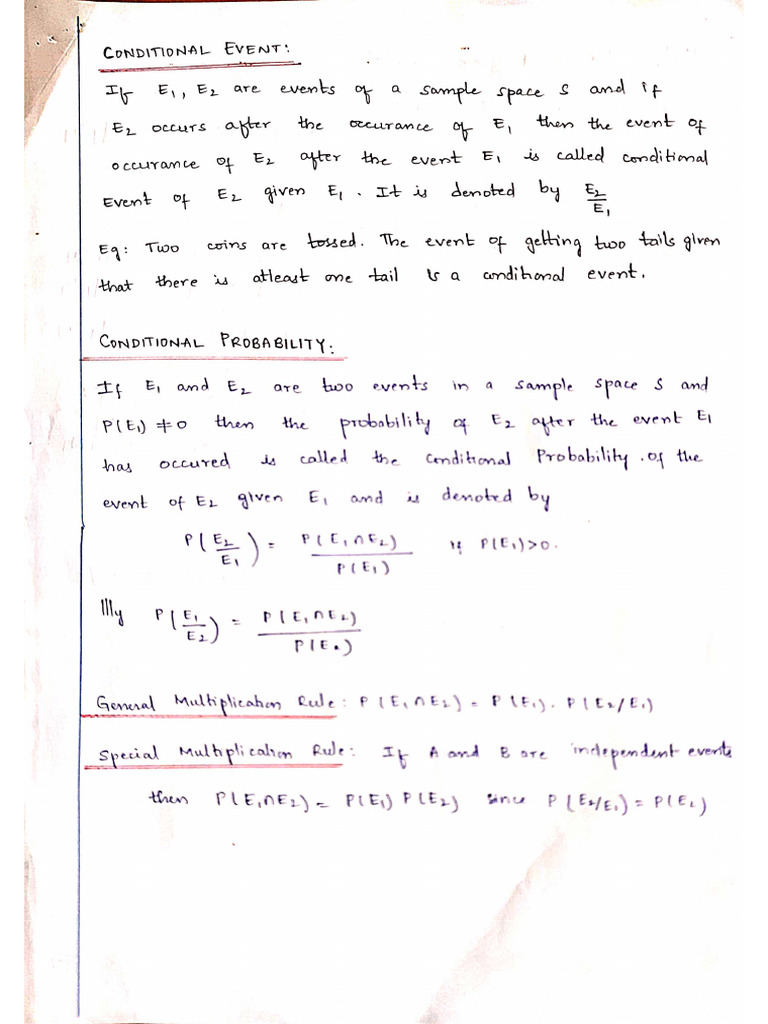 CONDITIONAL EVENT:
If E₁, E₂ are events of a sample space S and if
E₂ occurs after the occurance of E₁ then the event of
occurance of E₂ after the event E₁ is called conditional
Event of E₂ given E₁. It is denoted by E₂/E₁
Eg: Two coins are tossed. The event of getting two tails given
that there is atleast one tail is a conditional event.
CONDITIONAL PROBABILITY:
If E₁ and E₂ are two events in a sample space S and
P(E₁) ≠ 0 then the probability of E₂ after the event E₁
has occured is called the conditional Probability of the
event of E₂ given E₁ and is denoted by
P(E₂/E₁) = P(E₁∩E₂)/P(E₁) if P(E₁)>0.
Illly P(E₁/E₂) = P(E₁∩E₂)/P(E )
General Multiplication Rule: P(E₁∩E₂) = P(E₁). P(E₂/E₁)
Special Multiplication Rule: If A and B are independent events
then P(E₁∩E₂) = P(E₁) P(E₂) since P(E₂/E₁) = P(E₂)